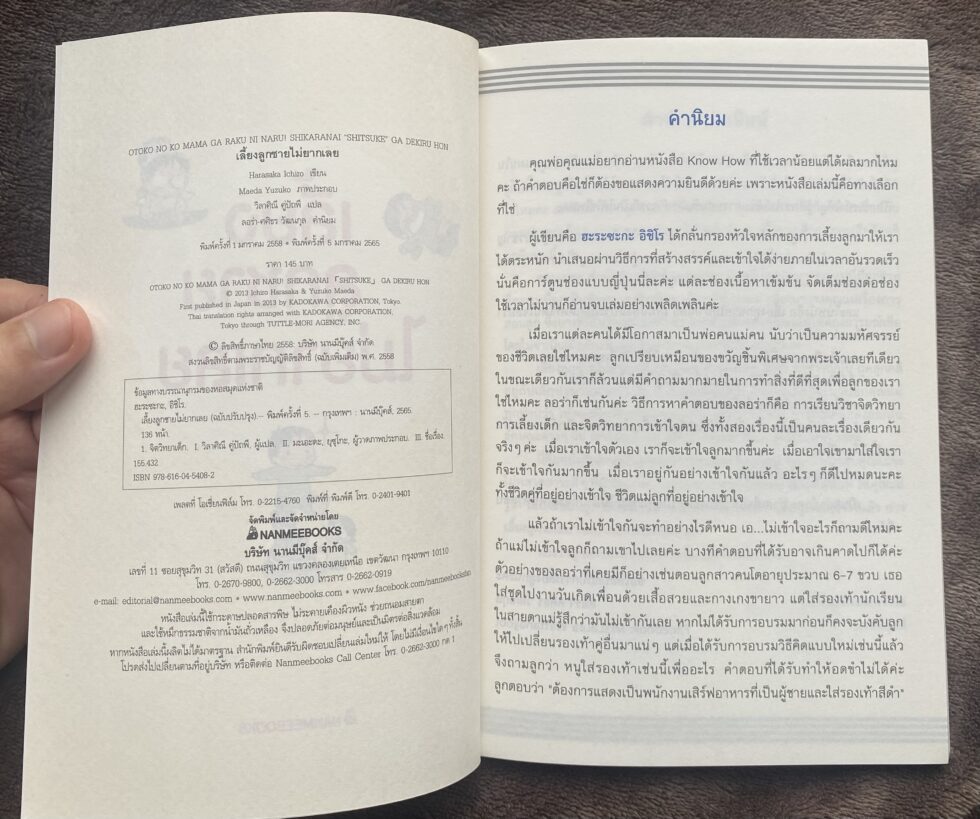 OTOKO NO KO MAMA GA RAKU NI NARU! SHIKARANAI "SHITSUKE" GA DEKIRU HON
เลี้ยงลูกชายไม่ยากเลย
Harasaka Ichiro เขียน
Maeda Yuzuko ภาพประกอบ
วิลาศิณี คู่ปัถพี แปล
ลอร่า-ศศิธร วัฒนกุล คำนิยม
พิมพ์ครั้งที่ 1 มกราคม 2558 • พิมพ์ครั้งที่ 5 มกราคม 2565
ราคา 145 บาท
OTOKO NO KO MAMA GA RAKU NI NARU! SHIKARANAI 「SHITSUKE」 GA DEKIRU HON
© 2013 Ichiro Harasaka & Yuzuko Maeda
First published in Japan in 2013 by KADOKAWA CORPORATION, Tokyo.
Thai translation rights arranged with KADOKAWA CORPORATION,
Tokyo through TUTTLE-MORI AGENCY, INC.
© ลิขสิทธิ์ภาษาไทย 2558: บริษัท นานมีบุ๊คส์ จำกัด
สงวนลิขสิทธิ์ตามพระราชบัญญัติลิขสิทธิ์ (ฉบับเพิ่มเติม) พ.ศ. 2558
ข้อมูลทางบรรณานุกรมของหอสมุดแห่งชาติ
ฮะระซะกะ, อิชิโร.
เลี้ยงลูกชายไม่ยากเลย (ฉบับปรับปรุง).-- พิมพ์ครั้งที่ 5. -- กรุงเทพฯ : นานมีบุ๊คส์, 2565.
136 หน้า.
1. จิตวิทยาเด็ก. I. วิลาศิณี คู่ปัถพี, ผู้แปล. II. มะเอะดะ, ยุซุโกะ, ผู้วาดภาพประกอบ. III. ชื่อเรื่อง.
155.432
ISBN 978-616-04-5408-2
เพลตที่ โอเชี่ยนฟิล์ม โทร. 0-2215-4760 พิมพ์ที่ พิมพ์ดี โทร. 0-2401-9401
จัดพิมพ์และจัดจำหน่ายโดย
NANMEEBOOKS
บริษัท นานมีบุ๊คส์ จำกัด
เลขที่ 11 ซอยสุขุมวิท 31 (สวัสดี) ถนนสุขุมวิท แขวงคลองเตยเหนือ เขตวัฒนา กรุงเทพฯ 10110
โทร. 0-2670-9800, 0-2662-3000 โทรสาร 0-2662-0919
e-mail: editorial@nanmeebooks.com • www.nanmeebooks.com • www.facebook.com/nanmeebooksfan
หนังสือเล่มนี้ใช้กระดาษปลอดสารพิษ ไม่ระคายเคืองผิวหนัง ช่วยถนอมสายตา
และใช้หมึกธรรมชาติจากน้ำมันถั่วเหลือง จึงปลอดภัยต่อมนุษย์และเป็นมิตรต่อสิ่งแวดล้อม
หากหนังสือเล่มนี้ผลิตไม่ได้มาตรฐาน สำนักพิมพ์ยินดีรับผิดชอบเปลี่ยนเล่มใหม่ให้ โดยไม่มีเงื่อนไขใดๆ ทั้งสิ้น
โปรดส่งไปเปลี่ยนตามที่อยู่บริษัท หรือติดต่อ Nanmeebooks Call Center โทร. 0-2662-3000 กด 1
คำนิยม
คุณพ่อคุณแม่อยากอ่านหนังสือ Know How ที่ใช้เวลาน้อยแต่ได้ผลมากไหม
คะ ถ้าคำตอบคือใช่ก็ต้องขอแสดงความยินดีด้วยค่ะ เพราะหนังสือเล่มนี้คือทางเลือก
ที่ใช่
ผู้เขียนคือ ฮะระซะกะ อิชิโร ได้กลั่นกรองหัวใจหลักของการเลี้ยงลูกมาให้เรา
ได้ตระหนัก นำเสนอผ่านวิธีการที่สร้างสรรค์และเข้าใจได้ง่ายภายในเวลาอันรวดเร็ว
นั่นคือการ์ตูนช่องแบบญี่ปุ่นนี่ละค่ะ แต่ละช่องเนื้อหาเข้มข้น จัดเต็มช่องต่อช่อง
ใช้เวลาไม่นานก็อ่านจบเล่มอย่างเพลิดเพลินค่ะ
เมื่อเราแต่ละคนได้มีโอกาสมาเป็นพ่อคนแม่คน นับว่าเป็นความมหัศจรรย์
ของชีวิตเลยใช่ไหมคะ ลูกเปรียบเหมือนของขวัญชิ้นพิเศษจากพระเจ้าเลยทีเดียว
ในขณะเดียวกันเราก็ล้วนแต่มีคำถามมากมายในการทำสิ่งที่ดีที่สุดเพื่อลูกของเรา
ใช่ไหมคะ ลอร่าก็เช่นกันค่ะ วิธีการหาคำตอบของลอร่าก็คือ การเรียนวิชาจิตวิทยา
การเลี้ยงเด็ก และจิตวิทยาการเข้าใจตน ซึ่งทั้งสองเรื่องนี้เป็นคนละเรื่องเดียวกัน
จริงๆ ค่ะ เมื่อเราเข้าใจตัวเอง เราก็จะเข้าใจลูกมากขึ้นค่ะ เมื่อเอาใจเขามาใส่ใจเรา
ก็จะเข้าใจกันมากขึ้น เมื่อเราอยู่กันอย่างเข้าใจกันแล้ว อะไรๆ ก็ดีไปหมดนะคะ
ทั้งชีวิตคู่ที่อยู่อย่างเข้าใจ ชีวิตแม่ลูกที่อยู่อย่างเข้าใจ
แล้วถ้าเราไม่เข้าใจกันจะทำอย่างไรดีหนอ เอ...ไม่เข้าใจอะไรก็ถามดีไหมคะ
ถ้าแม่ไม่เข้าใจลูกก็ถามเขาไปเลยค่ะ บางทีคำตอบที่ได้รับอาจเกินคาดไปก็ได้ค่ะ
ตัวอย่างของลอร่าที่เคยมีก็อย่างเช่นตอนลูกสาวคนโตอายุประมาณ 6-7 ขวบ เธอ
ใส่ชุดไปงานวันเกิดเพื่อนด้วยเสื้อสวยและกางเกงขายาว แต่ใส่รองเท้านักเรียน
ในสายตาแม่รู้สึกว่ามันไม่เข้ากันเลย หากไม่ได้รับการอบรมมาก่อนก็คงจะบังคับลูก
ให้ไปเปลี่ยนรองเท้าคู่อื่นมาแน่ๆ แต่เมื่อได้รับการอบรมวิธีคิดแบบใหม่เช่นนี้แล้ว
จึงถามลูกว่า หนูใส่รองเท้าเช่นนี้เพื่ออะไร คำตอบที่ได้รับทำให้อดขำไม่ได้ค่ะ
ลูกตอบว่า "ต้องการแสดงเป็นพนักงานเสิร์ฟอาหารที่เป็นผู้ชายและใส่รองเท้าสีดำ"